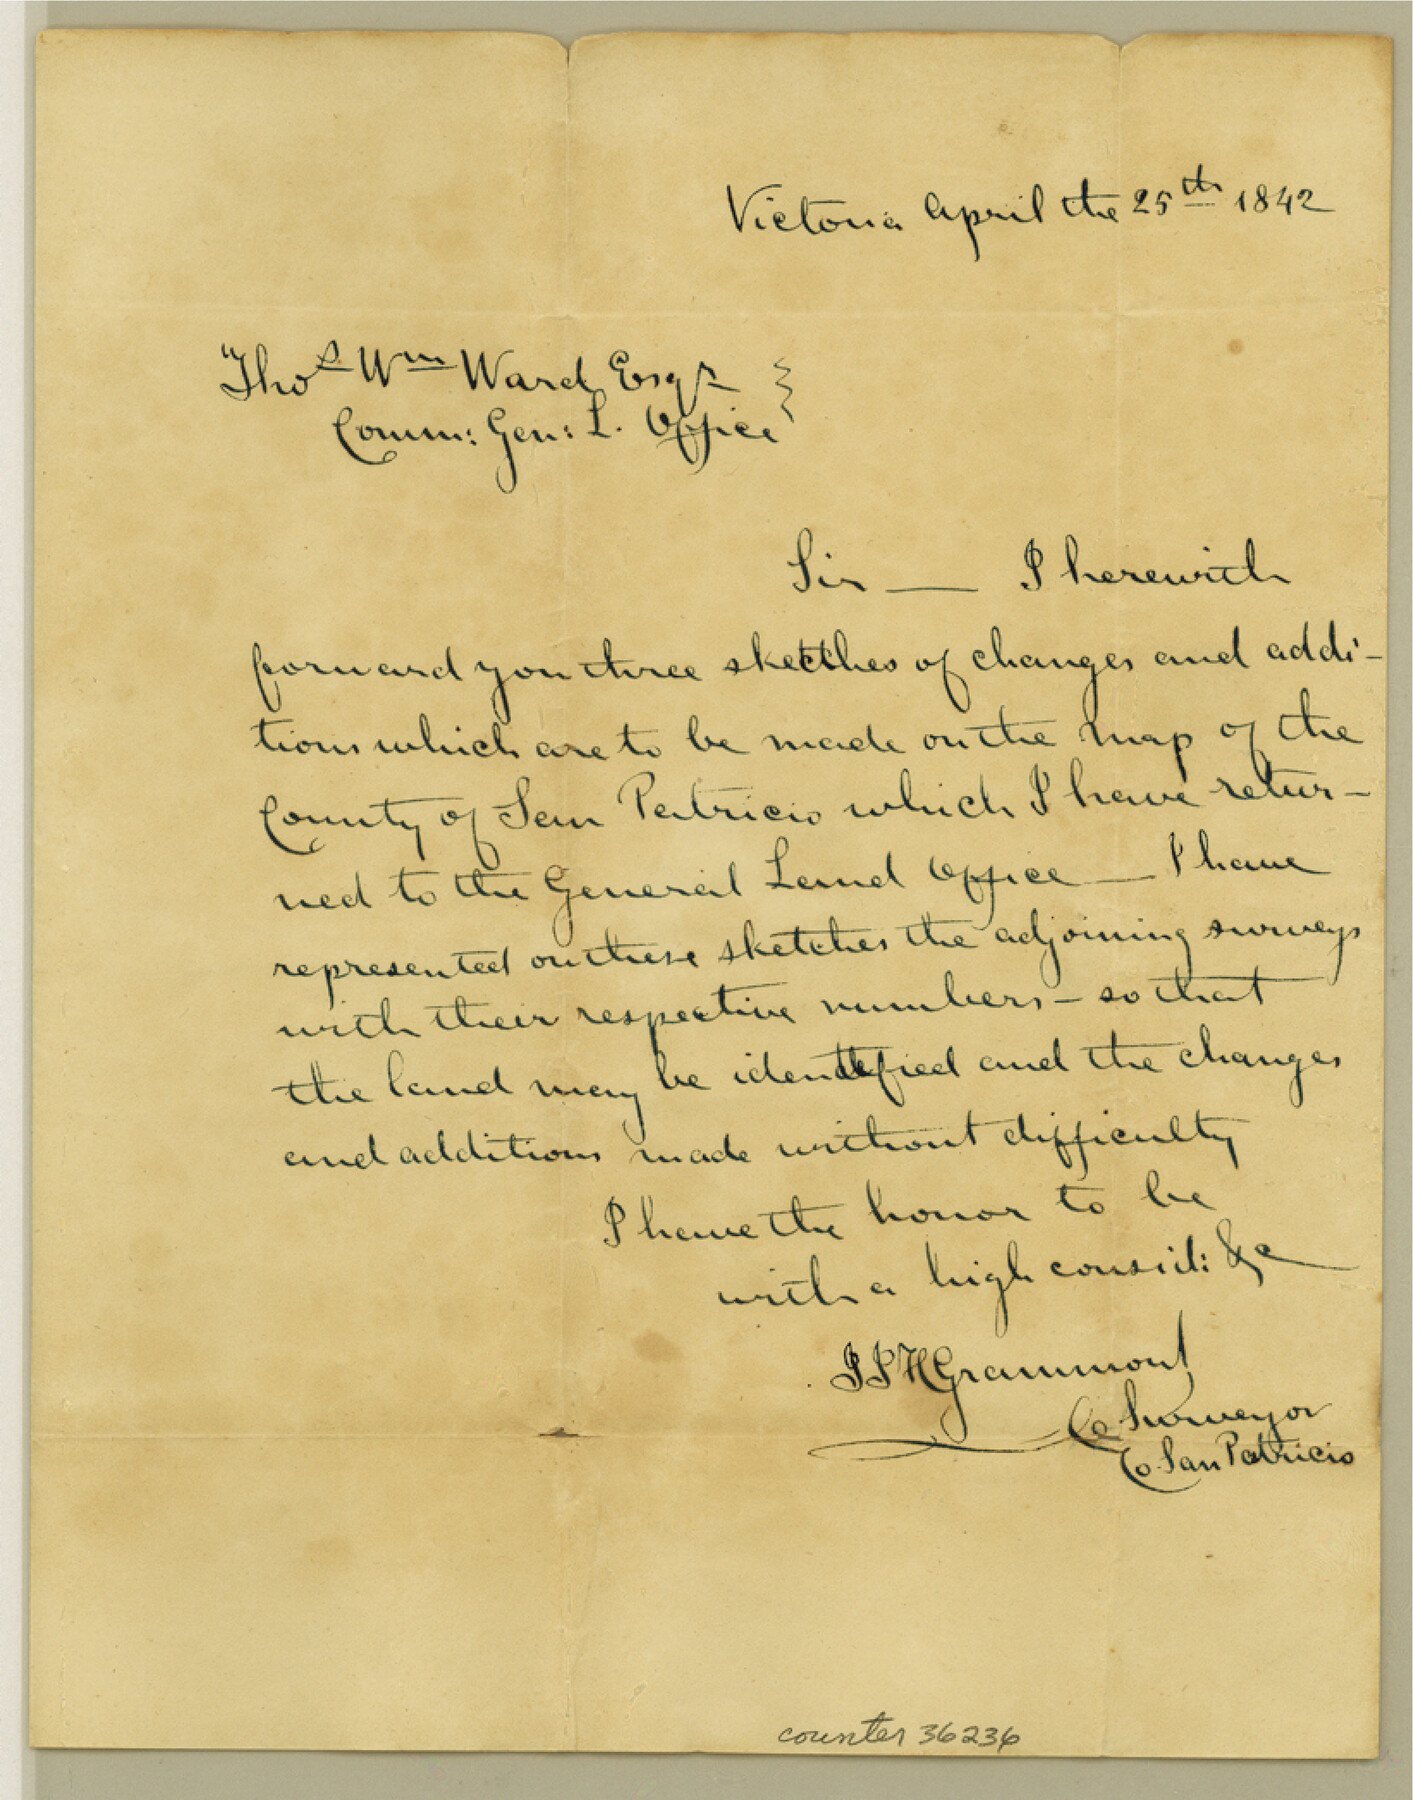 Victoria April the 25th 1842
Thos Wm Ward Esqr
Comm: Gen: L. Office
Sir — I herewith
forward you three sketches of changes and addi-
tions which are to be made on the map of the
County of San Patricio which I have retur-
ned to the General Land Office — I have
represented on these sketches the adjoining surveys
with their respective numbers – so that
the land may be identified and the changes
and additions made without difficulty
I have the honor to be
with a high consid: &c
J J H Grammont
Co Surveyor
Co San Patricio
counter 36236